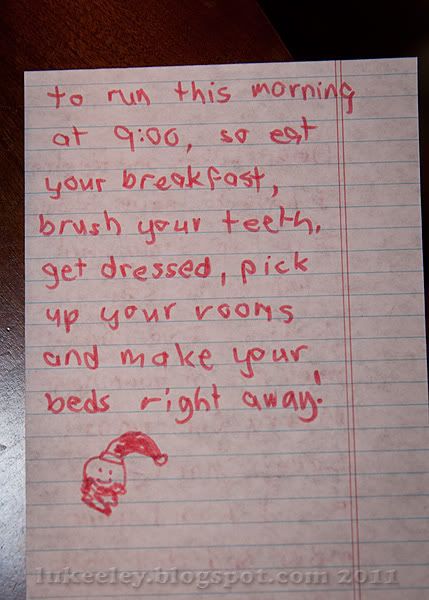 to run this morning
at 9:00, so eat
your breakfast,
brush your teeth,
get dressed, pick
up your rooms
and make your
beds right away!
lnkeeley.blogspot.com 2011